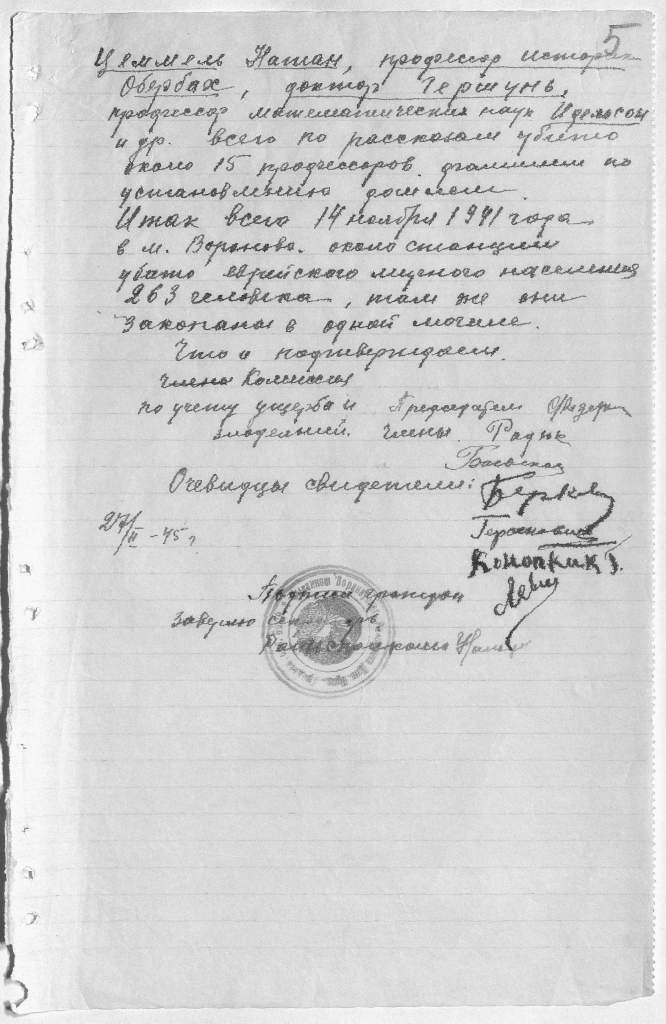 5
Цеммель Натан, профессор истории
Обербах, доктор Гершунь,
профессор математических наук Идельсон
и др. всего по рассказам убито
около 15 профессоров. фамилии по
установлению дошлем.
Итак всего 14 ноября 1941 года
в м. Вороново. около станции
убито еврейского мирного населения
263 человека, там же они
Закопаны в одной могиле.
Что и подтверждаем.
члены Комиссии
по учету ущерба и Председатель
злодеяний. члены. Радюк
Очевидцы свидетели:
Герсанович
27/II -45 г.
Конопкик
Леви
Подписи граждан
Заверяю секретарь